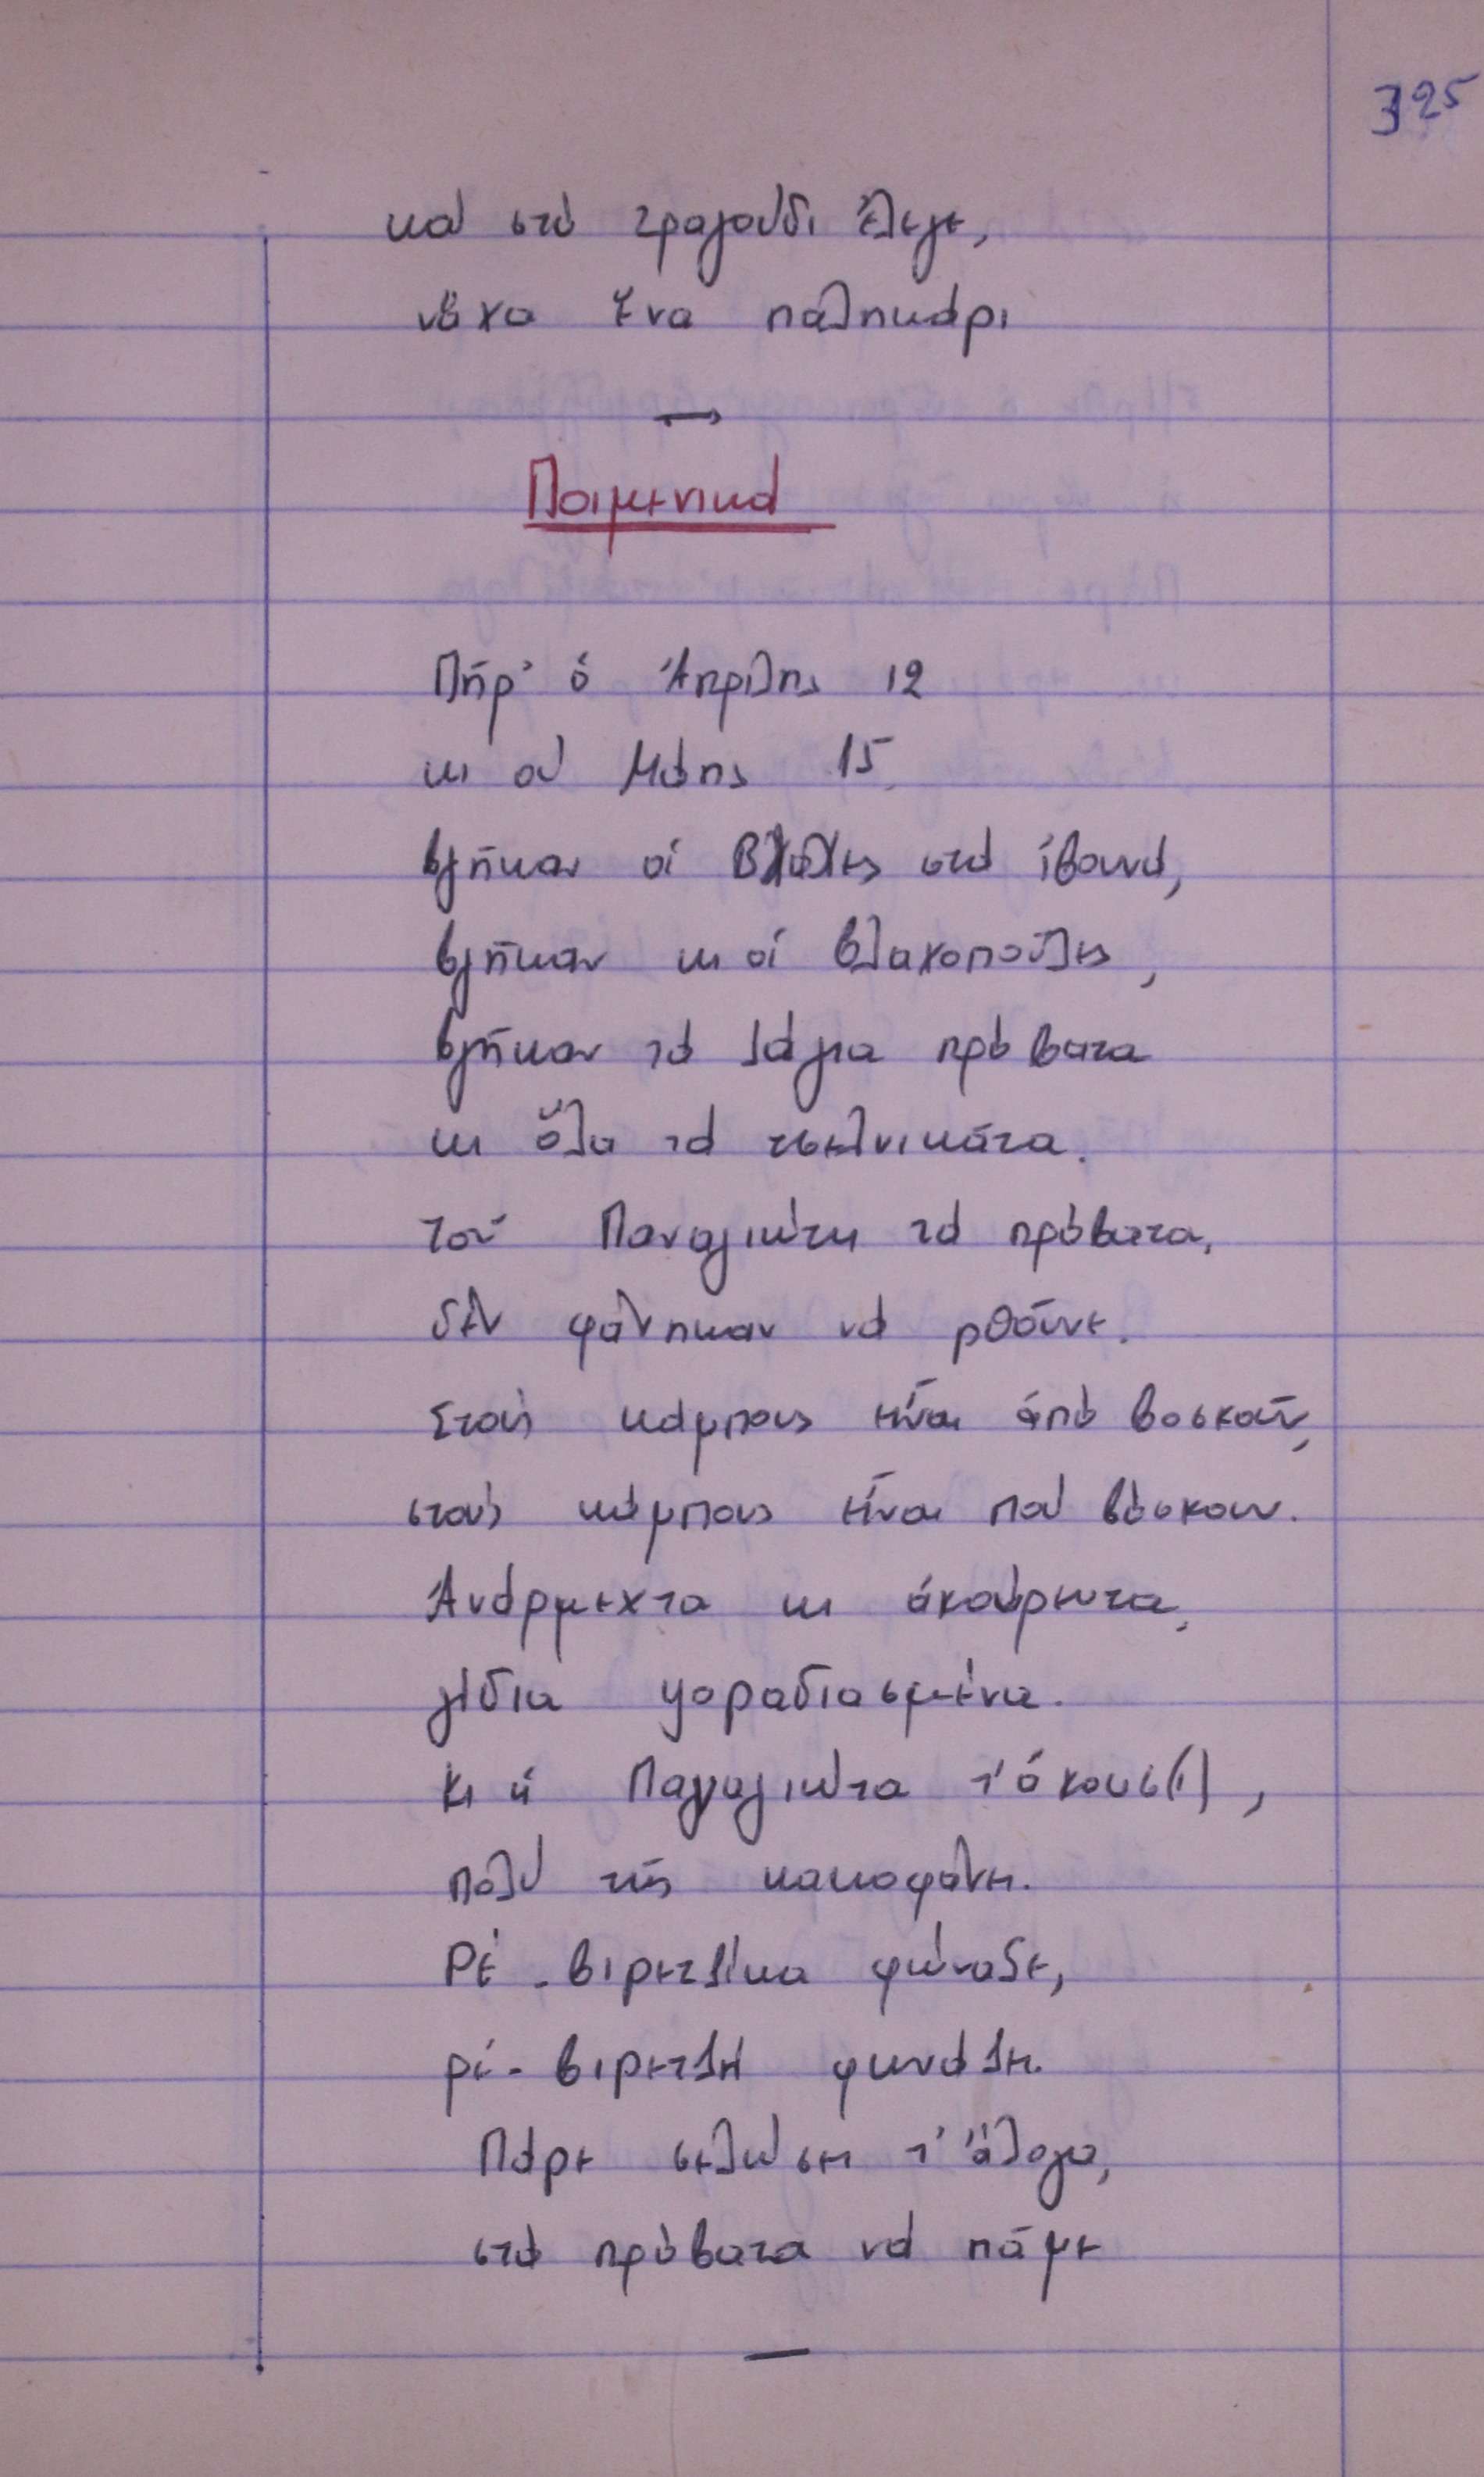 325
καὶ στὸ τραγούδι ἔλεγε,
νἄχα ἕνα παληκάρι
Ποιμενικά
Πῆρ' ὁ Ἀπρίλης 12
κι οὑ Μάης 15
βγῆκαν οἱ Βλάχες στὰ ἰβουνά,
βγῆκαν κι οἱ βλαχοποῦλες,
βγῆκαν τὰ λάγια πρόβατα
κι ὅλα τὰ τσελνικάτα.
τοῦ Παναγιώτη τὰ πρόβατα,
δὲν φάνηκαν νὰ ρθοῦνε.
Στοὺς κάμπους εἶναι ἀπὸ βοσκοῦν,
στοὺς κάμπους εἶναι ποὺ βόσκουν.
Ἀνάρμεχτα κι ἀκούρευτα,
γίδια ψοραδιασμένα.
κι ἡ Παναγιώτα τ' ἄκουσ(ι),
πολὺ τῆς κακοφάνη.
Ρὲ - βιρετζίκα φώναζε,
ρὲ - βιρετζῆ φωνάζει.
Πάρε σελώσει τ' ἄλογα,
στὰ πρόβατα νὰ πᾶμε